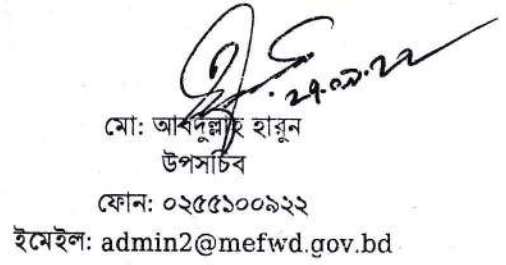 ২৭.০৯.২২
মো: আবদুল্লাহ হারুন
উপসচিব
ফোন: ০২৫৫১০০৯২২
ইমেইল: admin2@mefwd.gov.bd